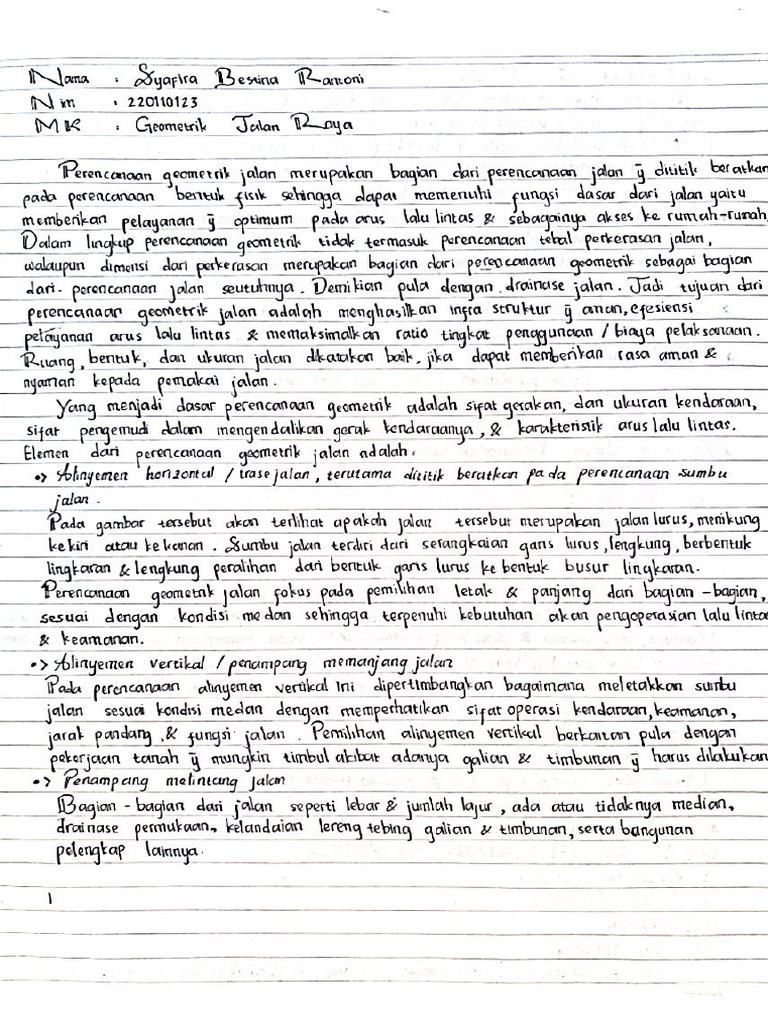 Nama : Syafira Bestina Ramoni
Nim : 220110123
MK : Geometrik Jalan Raya
Perencanaan geometrik jalan merupakan bagian dari perencanaan jalan yg dititik beratkan
pada perencanaan bentuk fisik sehingga dapat memenuhi fungsi dasar dari jalan yaitu
memberikan pelayanan yg optimum pada arus lalu lintas & sebagainya akses ke rumah-rumah,
Dalam lingkup perencanaan geometrik tidak termasuk perencanaan tebal perkerasan jalan,
walaupun dimensi dari perkerasan merupakan bagian dari perencanaan geometrik sebagai bagian
dari- perencanaan jalan seutuhnya. Demikian pula dengan drainase jalan. Jadi tujuan dari
perencanaan geometrik jalan adalah menghasilkan infra struktur yg aman, efesiensi
pelayanan arus lalu lintas & memaksimalkan ratio tingkat penggunaan / biaya pelaksanaan.
Ruang, bentuk, dan ukuran jalan dikatakan baik, jika dapat memberikan rasa aman &
nyaman kepada pemakai jalan.
Yang menjadi dasar perencanaan geometrik adalah sifat gerakan, dan ukuran kendaraan,
sifat pengemudi dalam mengendalikan gerak kendaraanya, & karakteristik arus lalu lintas.
Elemen dari perencanaan geometrik jalan adalah.
•> Alinyemen horizontal / trase jalan, terutama dititik beratkan pada perencanaan sumbu
jalan.
Pada gambar tersebut akan terlihat apakah jalan tersebut merupakan jalan lurus, menikung
ke kiri atau ke kanan. Sumbu jalan terdiri dari serangkaian garis lurus, lengkung, berbentuk
lingkaran & lengkung peralihan dari bentuk garis lurus ke bentuk busur lingkaran.
Perencanaan geometrik jalan fokus pada pemilihan letak & panjang dari bagian-bagian,
sesuai dengan kondisi medan sehingga terpenuhi kebutuhan akan pengoperasian lalu lintas
& keamanan.
•> Alinyemen vertikal / penampang memanjang jalan
Pada perencanaan alinyemen vertikal ini dipertimbangkan bagaimana meletakkan sumbu
jalan sesuai kondisi medan dengan memperhatikan sifat operasi kendaraan, keamanan,
jarak pandang, & fungsi jalan. Pemilihan alinyemen vertikal berkaitan pula dengan
pekerjaan tanah yg mungkin timbul akibat adanya galian & timbunan yg harus dilakukan
•> Penampang melintang jalan
Bagian-bagian dari jalan seperti lebar & jumlah lajur, ada atau tidaknya median,
drainase permukaan, kelandaian lereng tebing galian & timbunan, serta bangunan
pelengkap lainnya.